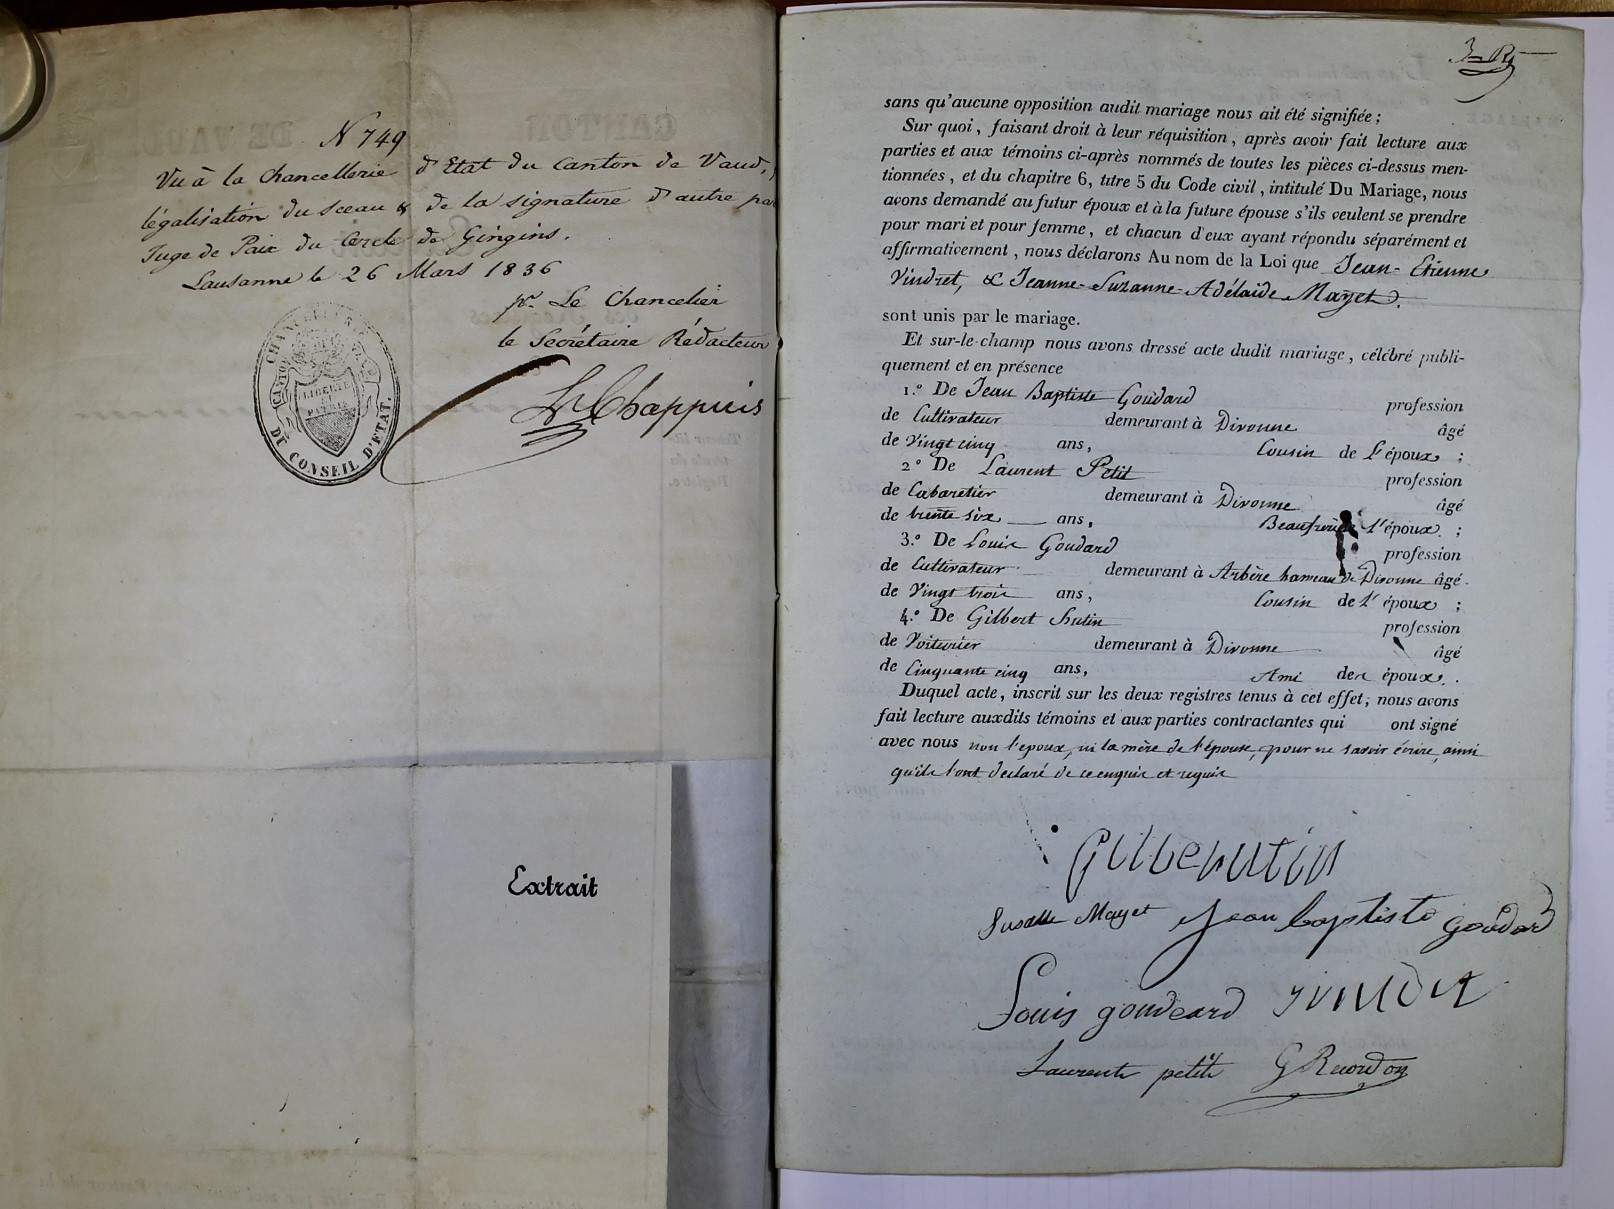 N 749
Vu à la Chancellerie d'Etat du Canton de Vaud,
légalisation du sceau & de la signature d'autre par
Juge de Paix du Cercle de Gingins.
Lausanne le 26 Mars 1836
pr. Le Chancelier
le Secrétaire Rédacteur
Chappuis
CHANCELLERIE
CANTON DE VAUD
LIBERTÉ
ET
PATRIE
DU CONSEIL D'ETAT.
Extrait
sans qu'aucune opposition audit mariage nous ait été signifiée ;
Sur quoi, faisant droit à leur réquisition, après avoir fait lecture aux
parties et aux témoins ci-après nommés de toutes les pièces ci-dessus men-
tionnées, et du chapitre 6, titre 5 du Code civil, intitulé Du Mariage, nous
avons demandé au futur époux et à la future épouse s'ils veulent se prendre
pour mari et pour femme, et chacun d'eux ayant répondu séparément et
affirmativement, nous déclarons Au nom de la Loi que Jean-Etienne
Vindret, & Jeanne-Suzanne-Adélaïde Mayet.
sont unis par le mariage.
Et sur-le-champ nous avons dressé acte dudit mariage, célébré publi-
quement et en présence
1.º De Jean Baptiste Goudard profession
de Cultivateur demeurant à Divonne âgé
de Vingt cinq ans, Cousin de l'époux ;
2º De Laurent Petit profession
de Cabaretier demeurant à Divonne âgé
de trente six ans, Beaufrère de l'époux. ;
3.º De Louis Goudard profession
de Cultivateur demeurant à Arbère hameau de Divonne âgé
de Vingt trois ans, Cousin de l'époux ;
4.º De Gilbert Hutin profession
de Voiturier demeurant à Divonne âgé
de Cinquante cinq ans, Ami des époux.
Duquel acte, inscrit sur les deux registres tenus à cet effet, nous avons
fait lecture auxdits témoins et aux parties contractantes qui ont signé
avec nous non l'epoux, ni la mère de l'épouse, pour ne savoir écrire, ainsi
qu'ils l'ont declaré de ce enquis et requis
Gilbe hutin
Susette Mayet Jean baptiste goudard
Louis goudeard
Laurent petit G Ruordon